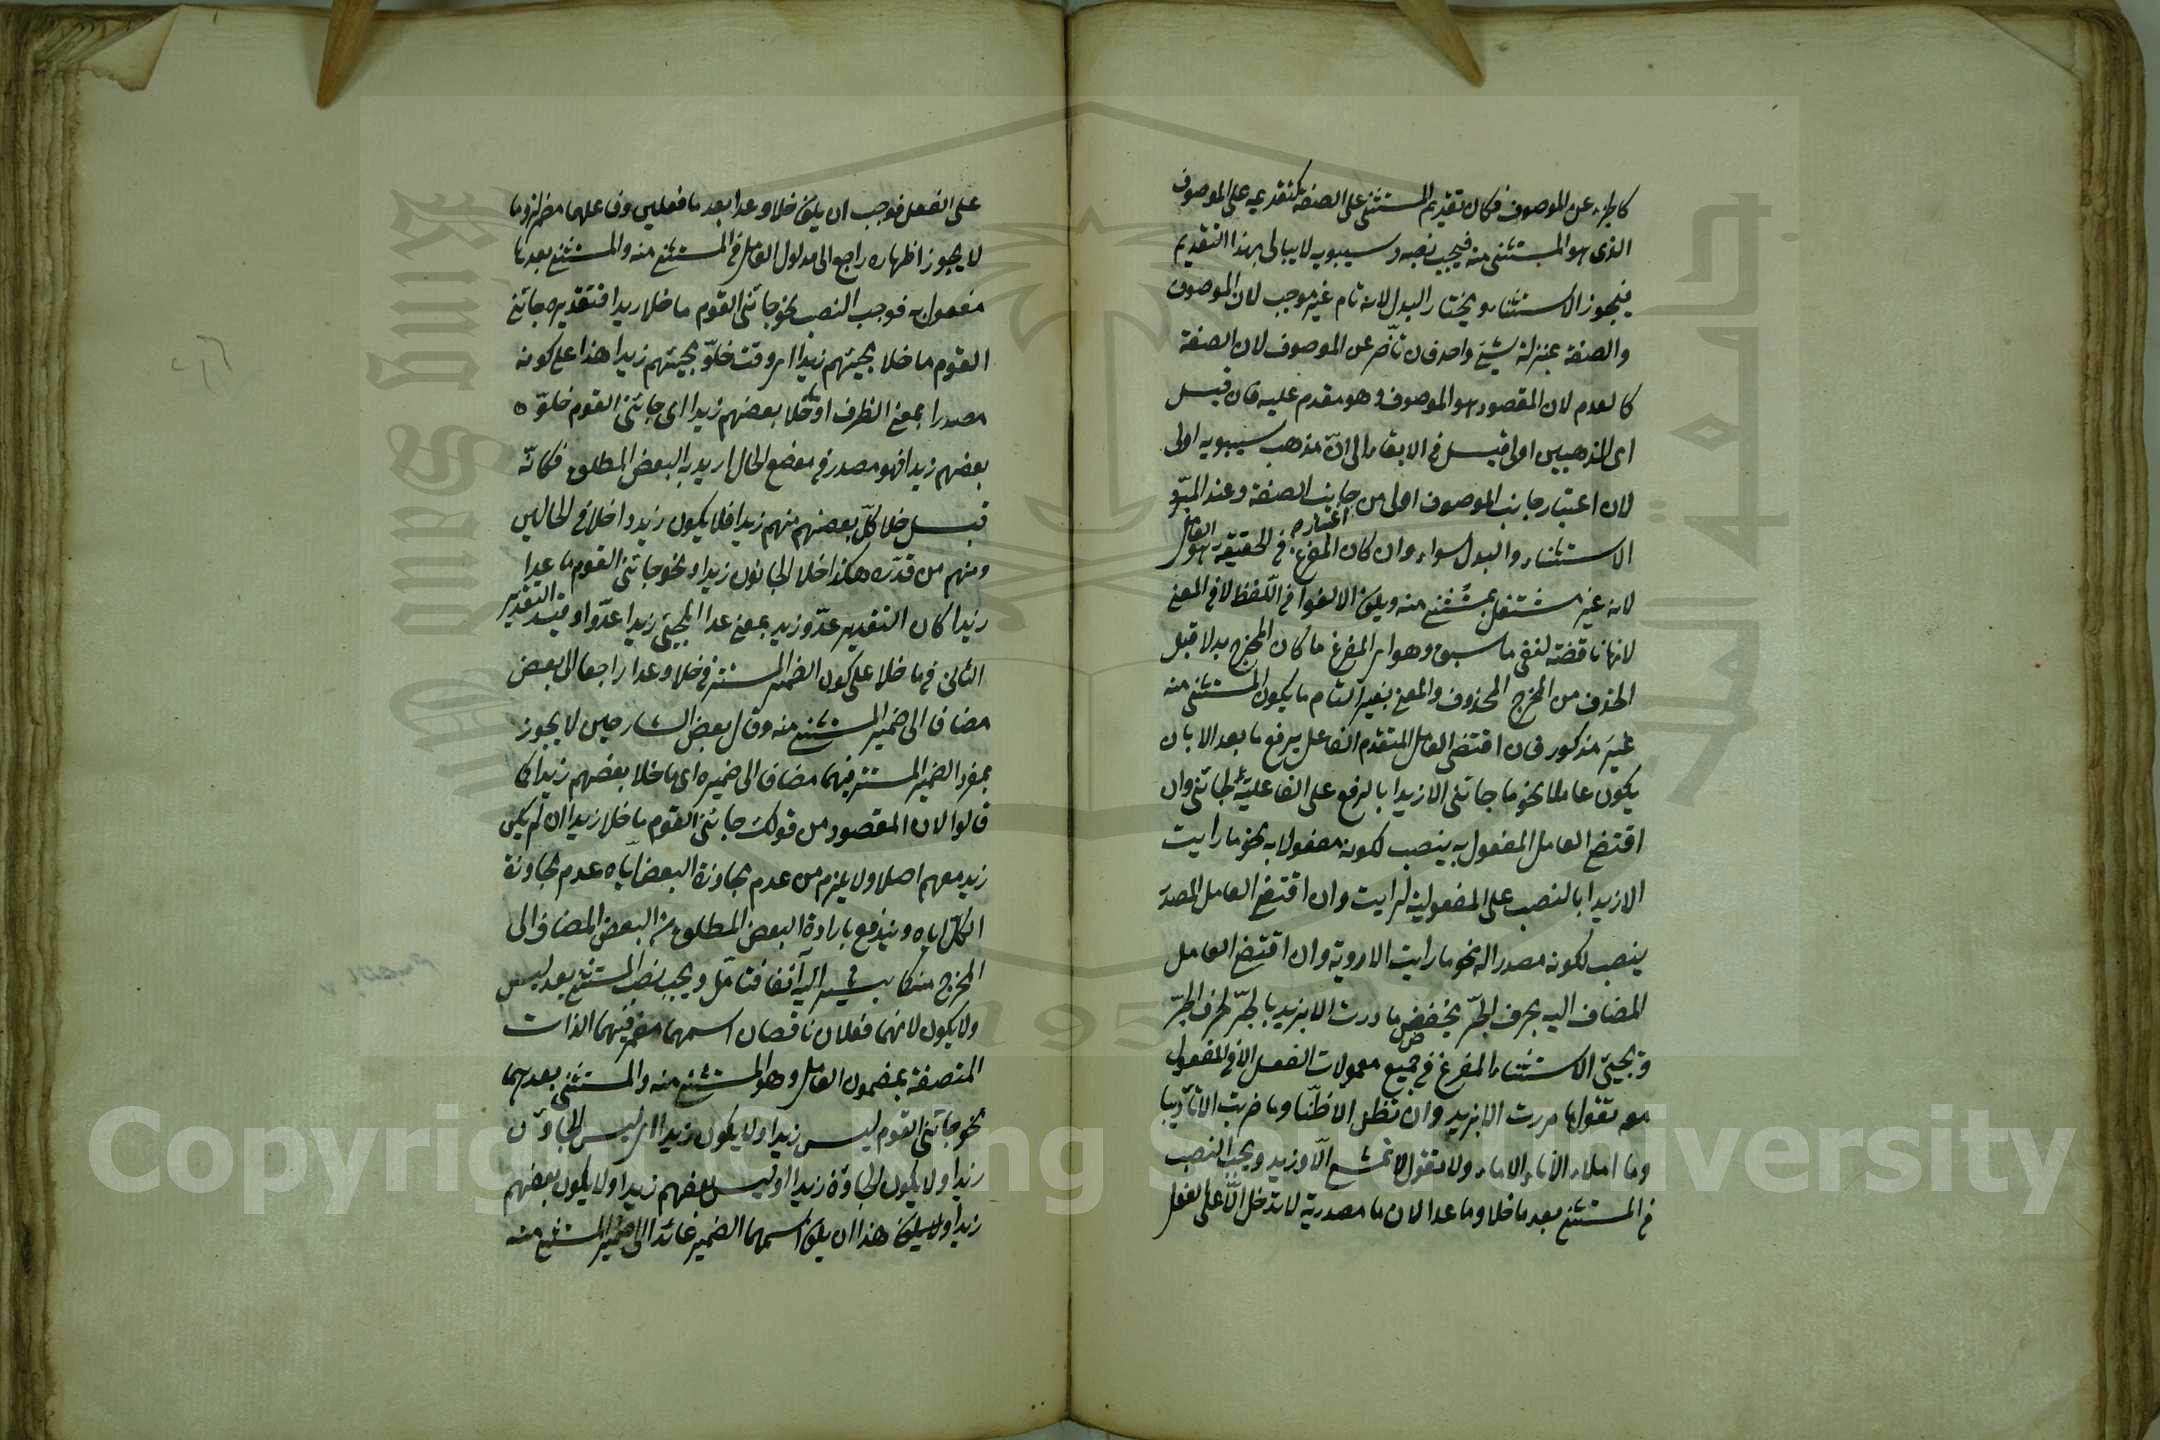 كالجزء عن الموصوف فكان تقديم المستثنى على الصفة كتقديمه على الموصوف
الذى هو المستثنى منه فيجب نصبه وسيبويه لا يبالى بهذا التقديم
فيجوز الاستثناء ويختار البدل لانه تام غير موجب لان الموصوف
والصفة بمنزلة شيئ واحد فان تأخر عن الموصوف لان الصفة
كالعدم لان المقصود هو الموصوف وهو مقدم عليه فان قيل
اى المذهبين اولى قيل فى الابقاء الى انّ مذهب سيبويه اولى
لان اعتبار جانب الموصوف اولى من جانب الصفة وعند المبرّد
الاستثناء والبدل سواء وان كان المفرغ فى الحقيقة هو العامل
لانه غير مشتغل بمستثنى منه ويلغ الا لغوا فى اللفظ لا فى المعنى
لانها ناقضة لنفى ما سبق وهو اى المفرغ ما كان المخرج بدلا قبل
الحذف من المخرج المحذوف والمعنى بغير التام ما يكون المستثنى منه
غير مذكور فان اقتضى العامل المتقدم الفاعل يرفع ما بعد الا بان
يكون عاملا نحو ما جاءنى الا زيدا بالرفع على الفاعلية لجاءنى وان
اقتضى العامل المفعول به ينصب لكونه مفعولا به نحو ما رايت
الا زيدا بالنصب على المفعولية لرايت وان اقتضى العامل المصدر
ينصب لكونه مصدرا له نحو ما رايت الا روية وان اقتضى العامل
المضاف اليه بحرف الجرّ يخفض ما مررت الا بزيد بالجرّ لحرف الجرّ
ويجيئ الاستثناء المفرغ فى جميع معمولات الفعل الا فى المفعول
معه تقول ما مررت الا بزيد وان نظن الا ظنّا وما ضربت الا تأديبا
وما امتلاء الاناء الا ماء ولا تقول لا تمش الّا وزيد ويجب النصب
فى المستثنى بعد ما خلا وما عدا لان ما مصدرية لا تدخل الّا على الفعل
على الفعل فوجب ان يكون خلا وعدا بعد ما فعلين وفاعلهما مضمر لزوما
لا يجوز اظهاره راجع الى مدلول العامل فى المستثنى منه والمستثنى بعدها
مفعول به فوجب النصب نحو جاءنى القوم ما خلا زيدا فتقديره جاءنى
القوم ما خلا مجيئهم زيدا اى وقت خلوّ مجيئهم زيدا هذا على كونه
مصدرا بمعنى الظرف او خلا بعضهم زيدا اى جاءنى القوم خلوّ
بعضهم زيدا فهو مصدر فى موضع الحال اريد به البعض المطلق فكانّه
قيل خلا كلّ بعضهم منهم زيدا فلا يكون زيد داخلا فى الحالين
ومنهم من قدّره هكذا خلا الجاؤن زيدا ونحو جاءنى القوم ما عدا
زيدا كان التقدير عدوّ زيد بمعنى عدا المجيئ زيدا عدّوا وقيد التقدير
الثانى فى ما خلا على كون الضمير المستتر فى خلا وعدا راجعا الى بعض
مضاف الى ضمير المستثنى منه وقال بعض الشارحين لا يجوز
بمفرد الضمير المستتر فيهما مضاف الى ضميره اى ما خلا بعضهم زيدا كما
قالوا لان المقصود من قولك جاءنى القوم ما خلا زيدا ان لم يكن
زيد معهم اصلا ولا يلزم من عدم مجاوزة البعض ايّاه عدم مجاوزة
الكل اياه ويندفع بارادة البعض المطلق من البعض المضاف الى
المخرج منه كما يشير اليه آنفا فتامّل ويجب نصب المستثنى بعد ليس
ولا يكون لانهما فعلان ناقصان اسمهما مضمر فيهما الذات
المتصفة بمضمون العامل وهو المستثنى منه والمستثنى بعدهما
نحو جاءنى القوم ليس زيدا ولا يكون زيدا اى ليس الجاؤن
زيدا ولا يكون الجاؤن زيدا او ليس بعضهم زيدا ولا يكون بعضهم
زيدا ولا يكون هذا ان يكون اسمهما الضمير عائدا الى ضمير المستثنى منه
Copyright © King Saud University
1957